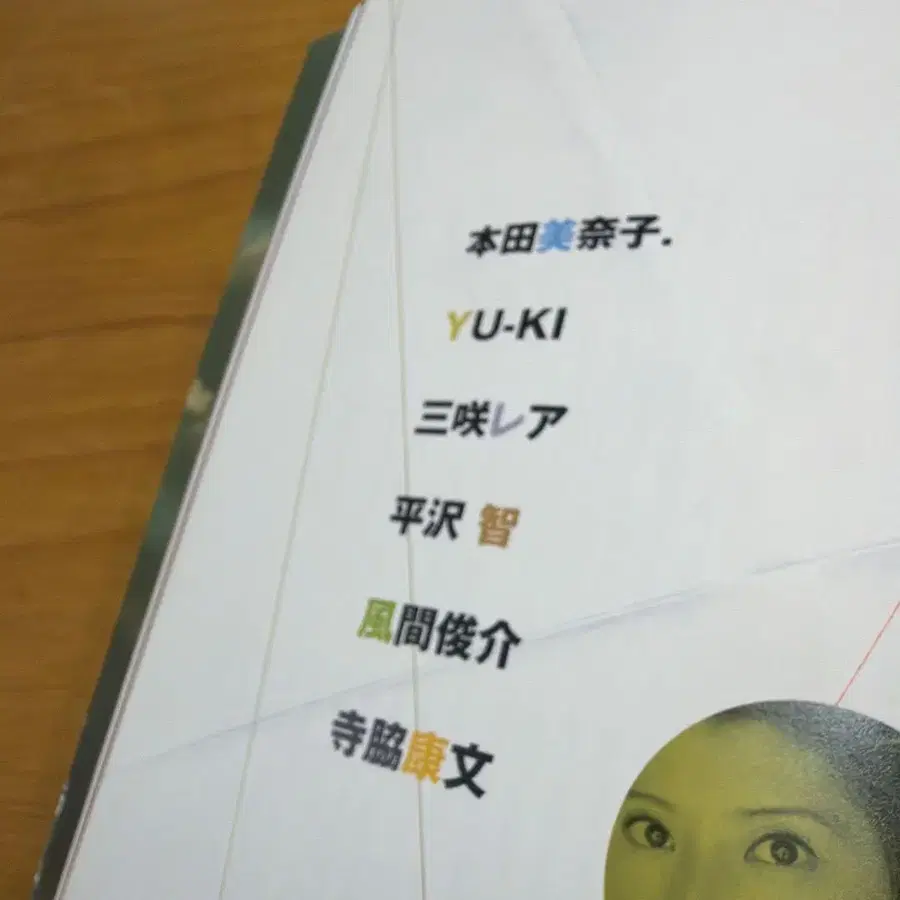 本田美奈子.
YU-KI
三咲レア
平沢 智
風間俊介
寺脇康文